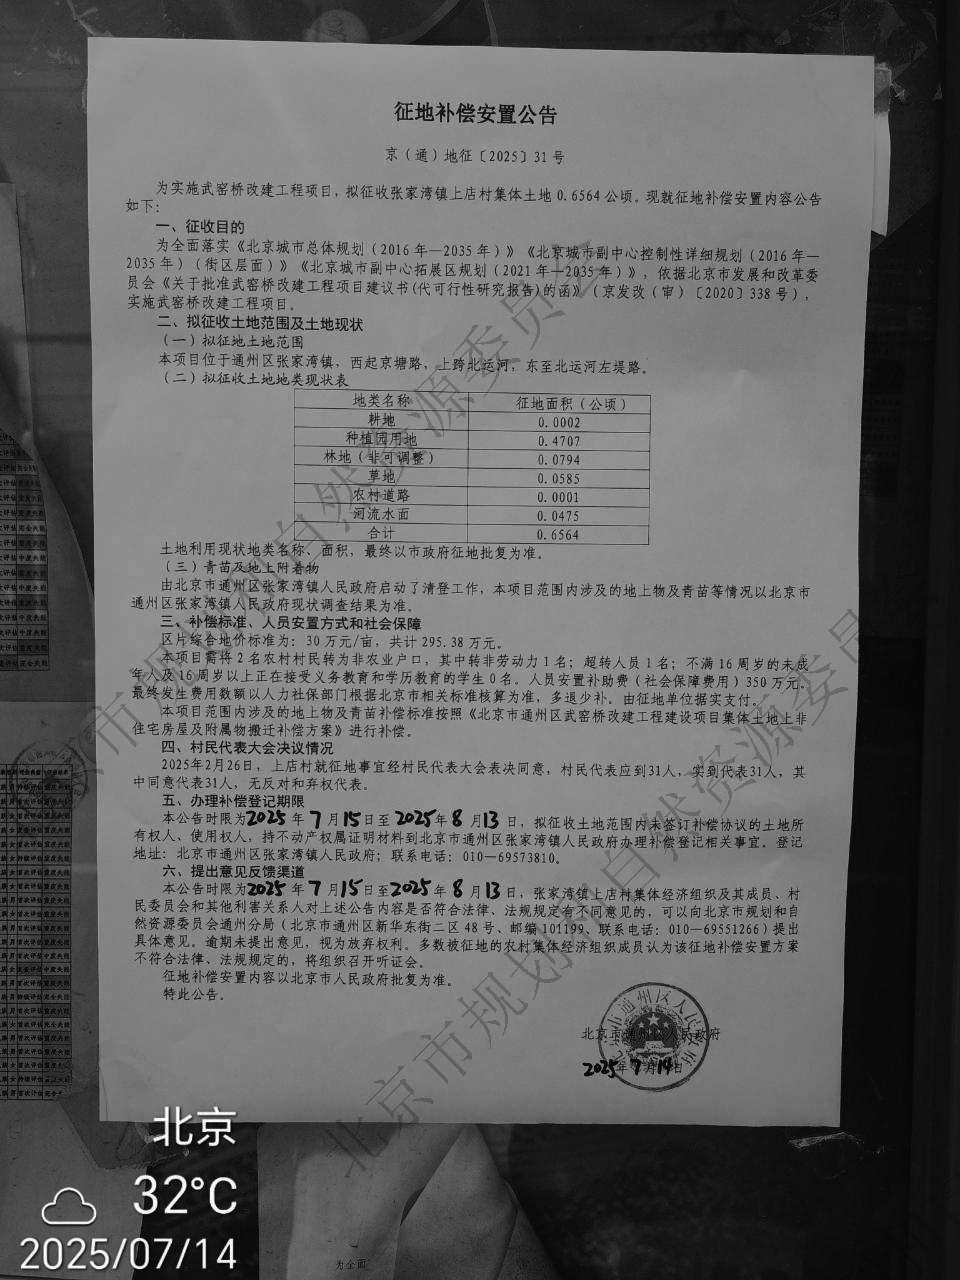 征地补偿安置公告
京（通）地征〔2025〕31号
为实施武窑桥改建工程项目，拟征收张家湾镇上店村集体土地0.6564公顷。现就征地补偿安置内容公告
如下：
一、征收目的
为全面落实《北京城市总体规划（2016年—2035年）》《北京城市副中心控制性详细规划（2016年—
2035年）（街区层面）》《北京城市副中心拓展区规划（2021年—2035年）》，依据北京市发展和改革委
员会《关于批准武窑桥改建工程项目建议书(代可行性研究报告)的函》（京发改（审）〔2020〕338号），
实施武窑桥改建工程项目。
二、拟征收土地范围及土地现状
（一）拟征地土地范围
本项目位于通州区张家湾镇，西起京塘路，上跨北运河，东至北运河左堤路。
（二）拟征收土地地类现状表
地类名称 征地面积（公顷）
耕地 0.0002
种植园用地 0.4707
林地（非可调整） 0.0794
草地 0.0585
农村道路 0.0001
河流水面 0.0475
合计 0.6564
土地利用现状地类名称、面积，最终以市政府征地批复为准。
（三）青苗及地上附着物
由北京市通州区张家湾镇人民政府启动了清登工作，本项目范围内涉及的地上物及青苗等情况以北京市
通州区张家湾镇人民政府现状调查结果为准。
三、补偿标准、人员安置方式和社会保障
区片综合地价标准为：30万元/亩，共计295.38万元。
本项目需将2名农村村民转为非农业户口，其中转非劳动力1名；超转人员1名；不满16周岁的未成
年人及16周岁以上正在接受义务教育和学历教育的学生0名。人员安置补助费（社会保障费用）350万元，
最终发生费用数额以人力社保部门根据北京市相关标准核算为准，多退少补。由征地单位据实支付。
本项目范围内涉及的地上物及青苗补偿标准按照《北京市通州区武窑桥改建工程建设项目集体土地上非
住宅房屋及附属物搬迁补偿方案》进行补偿。
四、村民代表大会决议情况
2025年2月26日，上店村就征地事宜经村民代表大会表决同意，村民代表应到31人，实到代表31人，其
中同意代表31人，无反对和弃权代表。
五、办理补偿登记期限
本公告时限为2025年7月15日至2025年8月13日，拟征收土地范围内未签订补偿协议的土地所
有权人、使用权人，持不动产权属证明材料到北京市通州区张家湾镇人民政府办理补偿登记相关事宜。登记
地址：北京市通州区张家湾镇人民政府；联系电话：010—69573810。
六、提出意见反馈渠道
本公告时限为2025年7月15日至2025年8月13日，张家湾镇上店村集体经济组织及其成员、村
民委员会和其他利害关系人对上述公告内容是否符合法律、法规规定有不同意见的，可以向北京市规划和自
然资源委员会通州分局（北京市通州区新华东街二区48号、邮编101199、联系电话：010—69551266）提出
具体意见。逾期未提出意见，视为放弃权利。多数被征地的农村集体经济组织成员认为该征地补偿安置方案
不符合法律、法规规定的，将组织召开听证会。
征地补偿安置内容以北京市人民政府批复为准。
特此公告。
北京市通州区人民政府
2025年7月14日
北京
32℃
2025/07/14
为全面